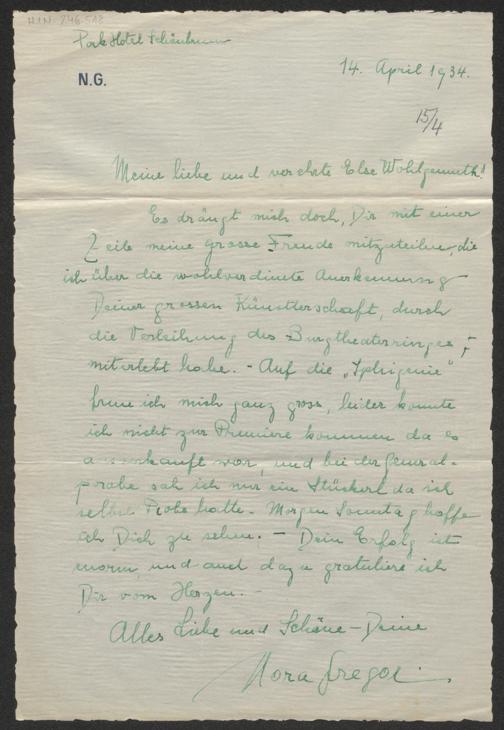 H.I.N. 246.512
Park Hotel Schönbrunn
N.G.
14. April 1934.
15/4
Meine liebe und verehrte Else Wohlgemuth!
Es drängt mich doch, Dir mit einer
Zeile meine grosse Freude mitzuteilen, die
ich über die wohlverdiente Anerkennung
Deiner grossen Künstlerschaft, durch
die Verleihung des Burgtheaterringes,
miterlebt habe. - Auf die „Iphigenie"
freue ich mich ganz gross, leider konnte
ich nicht zur Premiere kommen da es
ausverkauft war, und bei der General-
probe sah ich nur ein Stückerl da ich
selbst Probe hatte. Morgen Sonntag hoffe
ich Dich zu sehen. - Dein Erfolg ist
enorm, und auch dazu gratuliere ich
Dir vom Herzen. -
Alles Liebe und Schöne - Deine
Nora Gregor.